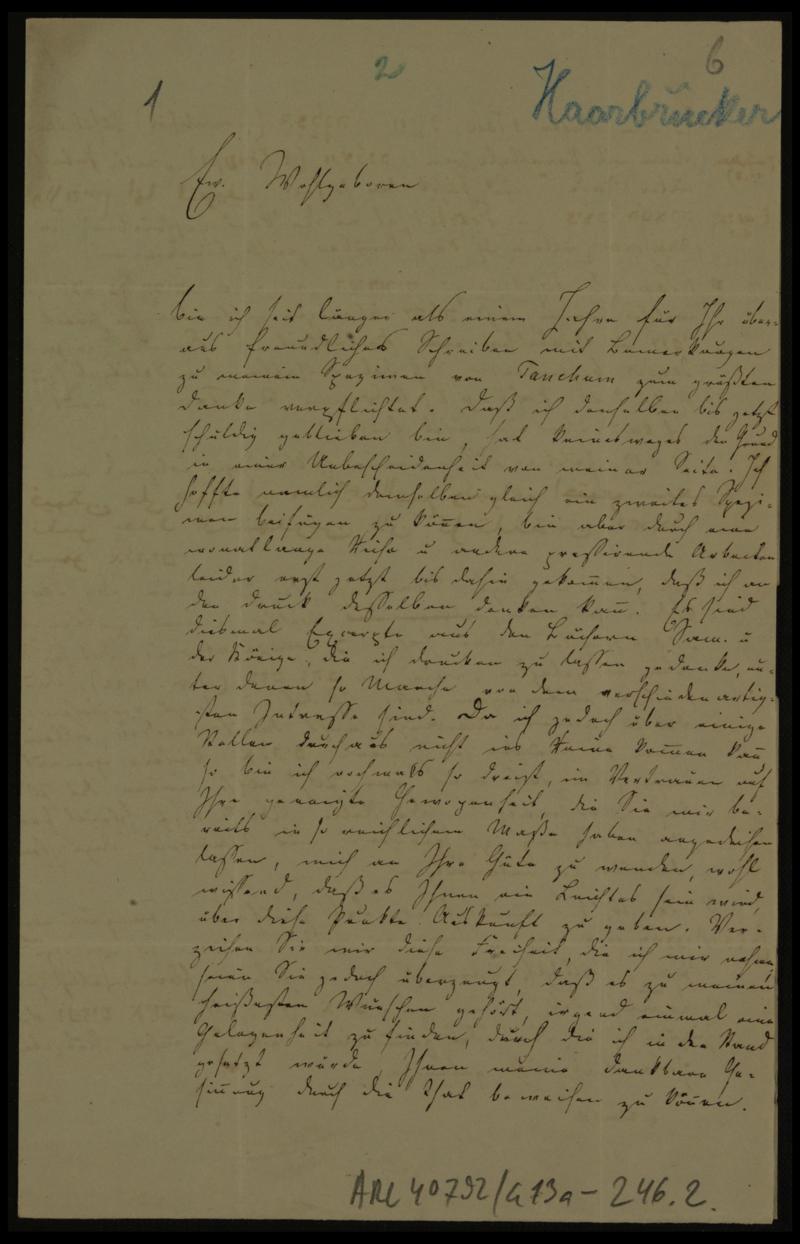 1
2
6
Haarbrücker
Ew. Wohlgeboren
bin ich seit länger als einem Jahre für Ihr über-
aus freundliches Schreiben mit Bemerkungen
zu meinem Spezimen von Tanchum zum größten
Danke verpflichtet. Daß ich denselben bis jetzt
schuldig geblieben bin, hat keinesweges den Grund
in einer Unbescheidenheit von meiner Seite. Ich
hoffte nemlich demselben gleich ein zweites Spezi-
men beifügen zu können, bin aber durch eine
monatlange Reise u andere pressirende Arbeiten
leider erst jetzt bis dahin gekom̅en, daß ich an
den Druck desselben denken kan̅. Es sind
diesmal Excerpte aus den Büchern Sam. u
der Könige, die ich drucken zu lassen gedenke, un-
ter denen so Manche von dem verschiedenartig-
sten Intresse sind. Da ich jedoch über einige
Stellen durchaus nicht ins Reine kom̅en kan̅
so bin ich nochmals so dreist, im Vertrauen auf
Ihre geneigte Gewogenheit, die Sie mir be-
reits in so reichlichem Maße haben angedeihen
lassen, mich an Ihre Güte zu wenden, wohl
wissend, daß es Ihnen ein Leichtes sein wird,
über diese Punkte Auskunft zu geben. Ver-
zeihen Sie mir diese Freiheit, die ich mir nehme,
seien Sie jedoch überzeugt, daß es zu meinen
heißesten Wünschen gehört, irgend einmal eine
Gelegenheit zu finden, durch die ich in den Stand
gesetzt würde, Ihnen meine dankbare Ge-
sin̅ung durch die That beweisen zu kön̅en.
ARC 40792/G13a-246.2.